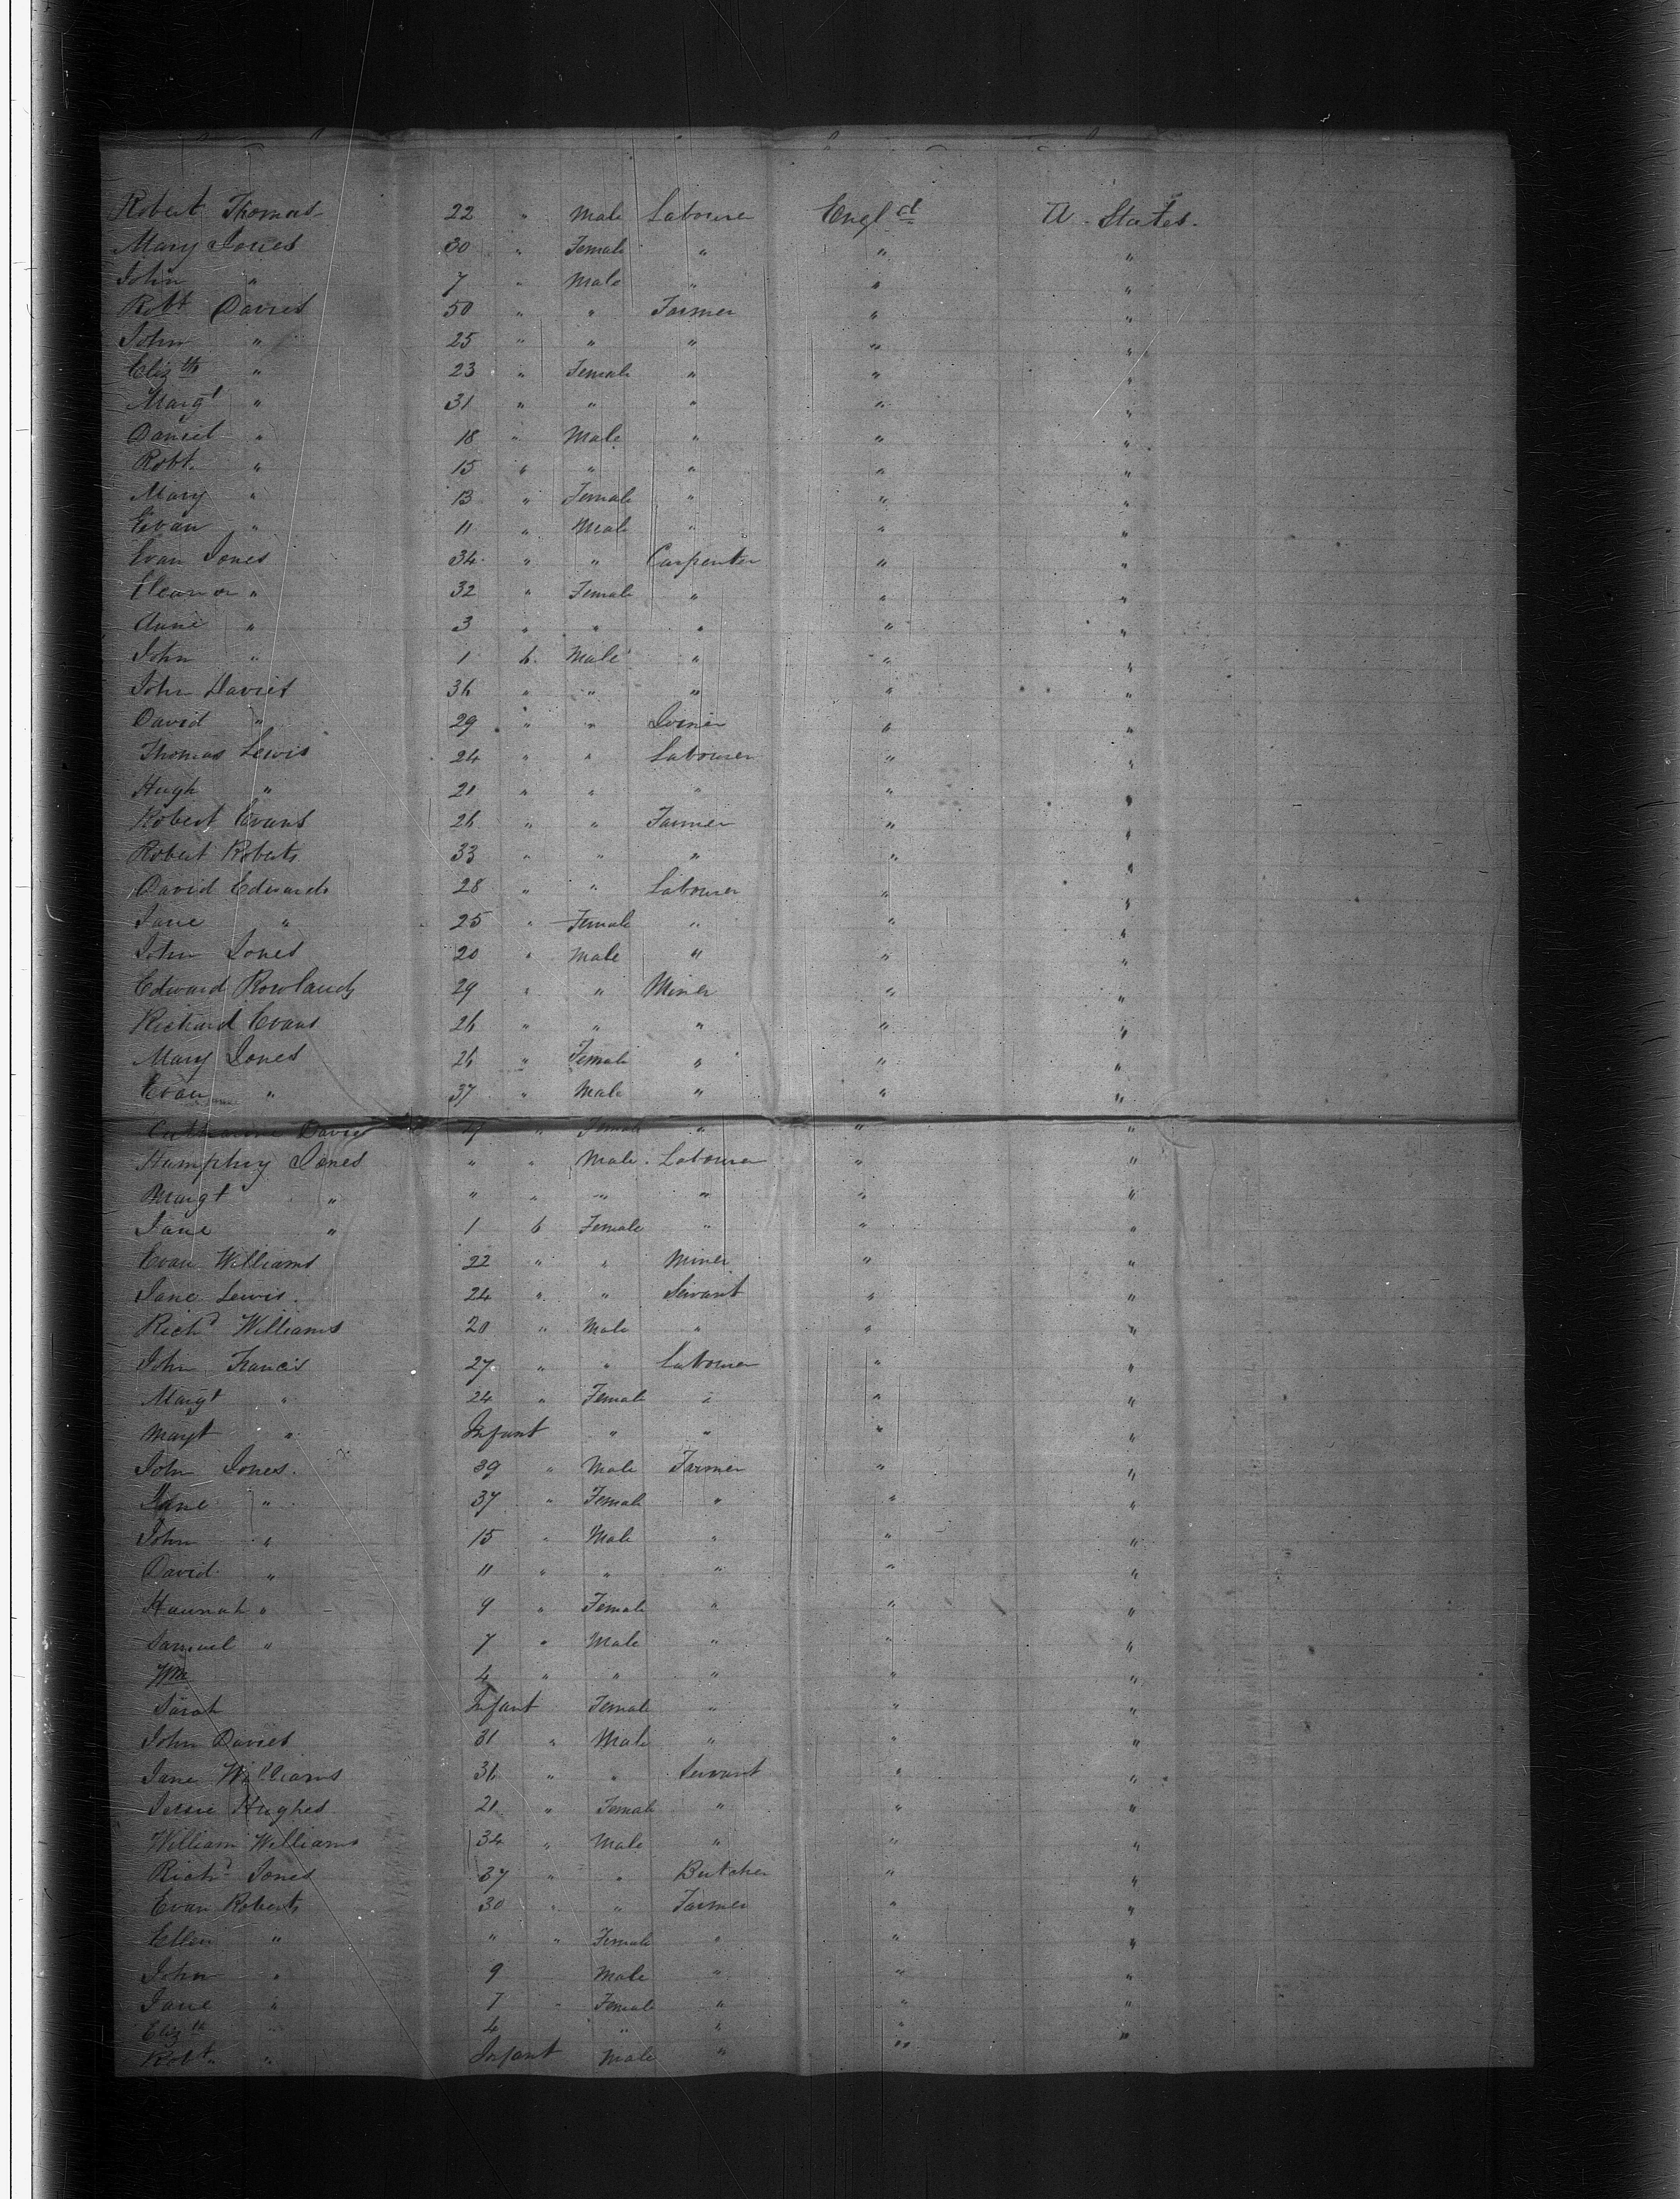 Robert Thomas 22 " Male Labourer Engld U. States.
Mary Jones 30 " Female " " "
John " 7 " Male " " "
Robt Davies 50 " " Farmer " "
John " 25 " " " " "
Elizth " 23 " Female " " "
Margt " 31 " " " " "
Daniel " 18 " Male " " "
Robt. " 15 " " " " "
Mary " 13 " Female " " "
Evan " 11 " Male " " "
Evan Jones 34 " " Carpenter " "
Eleanor " 32 " Female " " "
Anne " 3 " " " " "
John " 1 6 Male " " "
John Davies 36 " " " " "
David " 29 " " Joiner " "
Thomas Lewis 24 " " Labourer " "
Hugh " 21 " " " " "
Robert Evans 26 " " Farmer " "
Robert Roberts 33 " " " " "
David Edwards 28 " " Labourer " "
Jane " 25 " Female " " "
John Jones 20 " Male " " "
Edward Rowlands 29 " " Miner " "
Richard Evans 26 " " " " "
Mary Jones 26 " Female " " "
Evan " 37 " Male " " "
Catharine Davies " Female " " "
Humphrey Jones " " Male Labourer " "
Margt " " " " " " "
Jane " 1 6 Female " " "
Evan Williams 22 " " Miner " "
Jane Lewis. 24 " " Servant " "
Richd Williams 20 " Male " " "
John Francis 27 " " Labourer " "
Margt " 24 " Female " " "
Margt " Infant " " " "
John Jones. 39 " Male Farmer " "
Jane " 37 " Female " " "
John " 15 " Male " " "
David " 11 " " " " "
Hannah " 9 " Female " " "
Samuel " 7 " Male " " "
Wm 4 " " " " "
Sarah Infant Female " " "
John Davies 31 " Male " " "
Jane Williams 36 " " Servant " "
Jessie Hughes 21 " Female " " "
William Williams 34 " Male " " "
Richd Jones 37 " " Butcher " "
Evan Roberts 30 " " Farmer " "
Ellen " " " Female " " "
John " 9 Male " " "
Jane " 7 " Female " " "
Elizth " 4 " " " "
Robt. " Infant Male " "